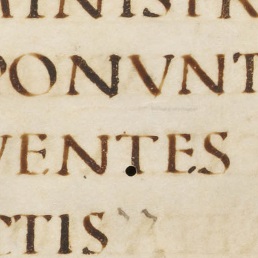 MINISTR
PONVNT
VENTES
CTIS